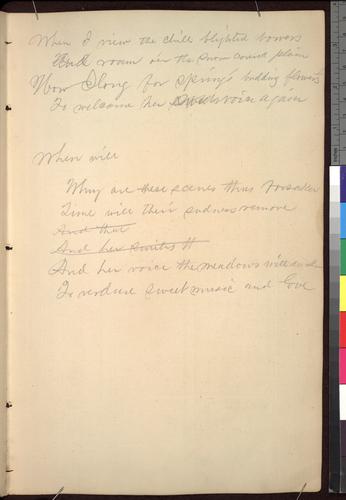 When I view the chill blighted bowers
And roam o'er the snow coverd plain
How I long for spring's budding flowers
To welcome her again
When will
Why are these scenes thus forsaken
Time will their sadness remove
And that
And her smiles
And her voice the meadows will
To verdure sweet music and love